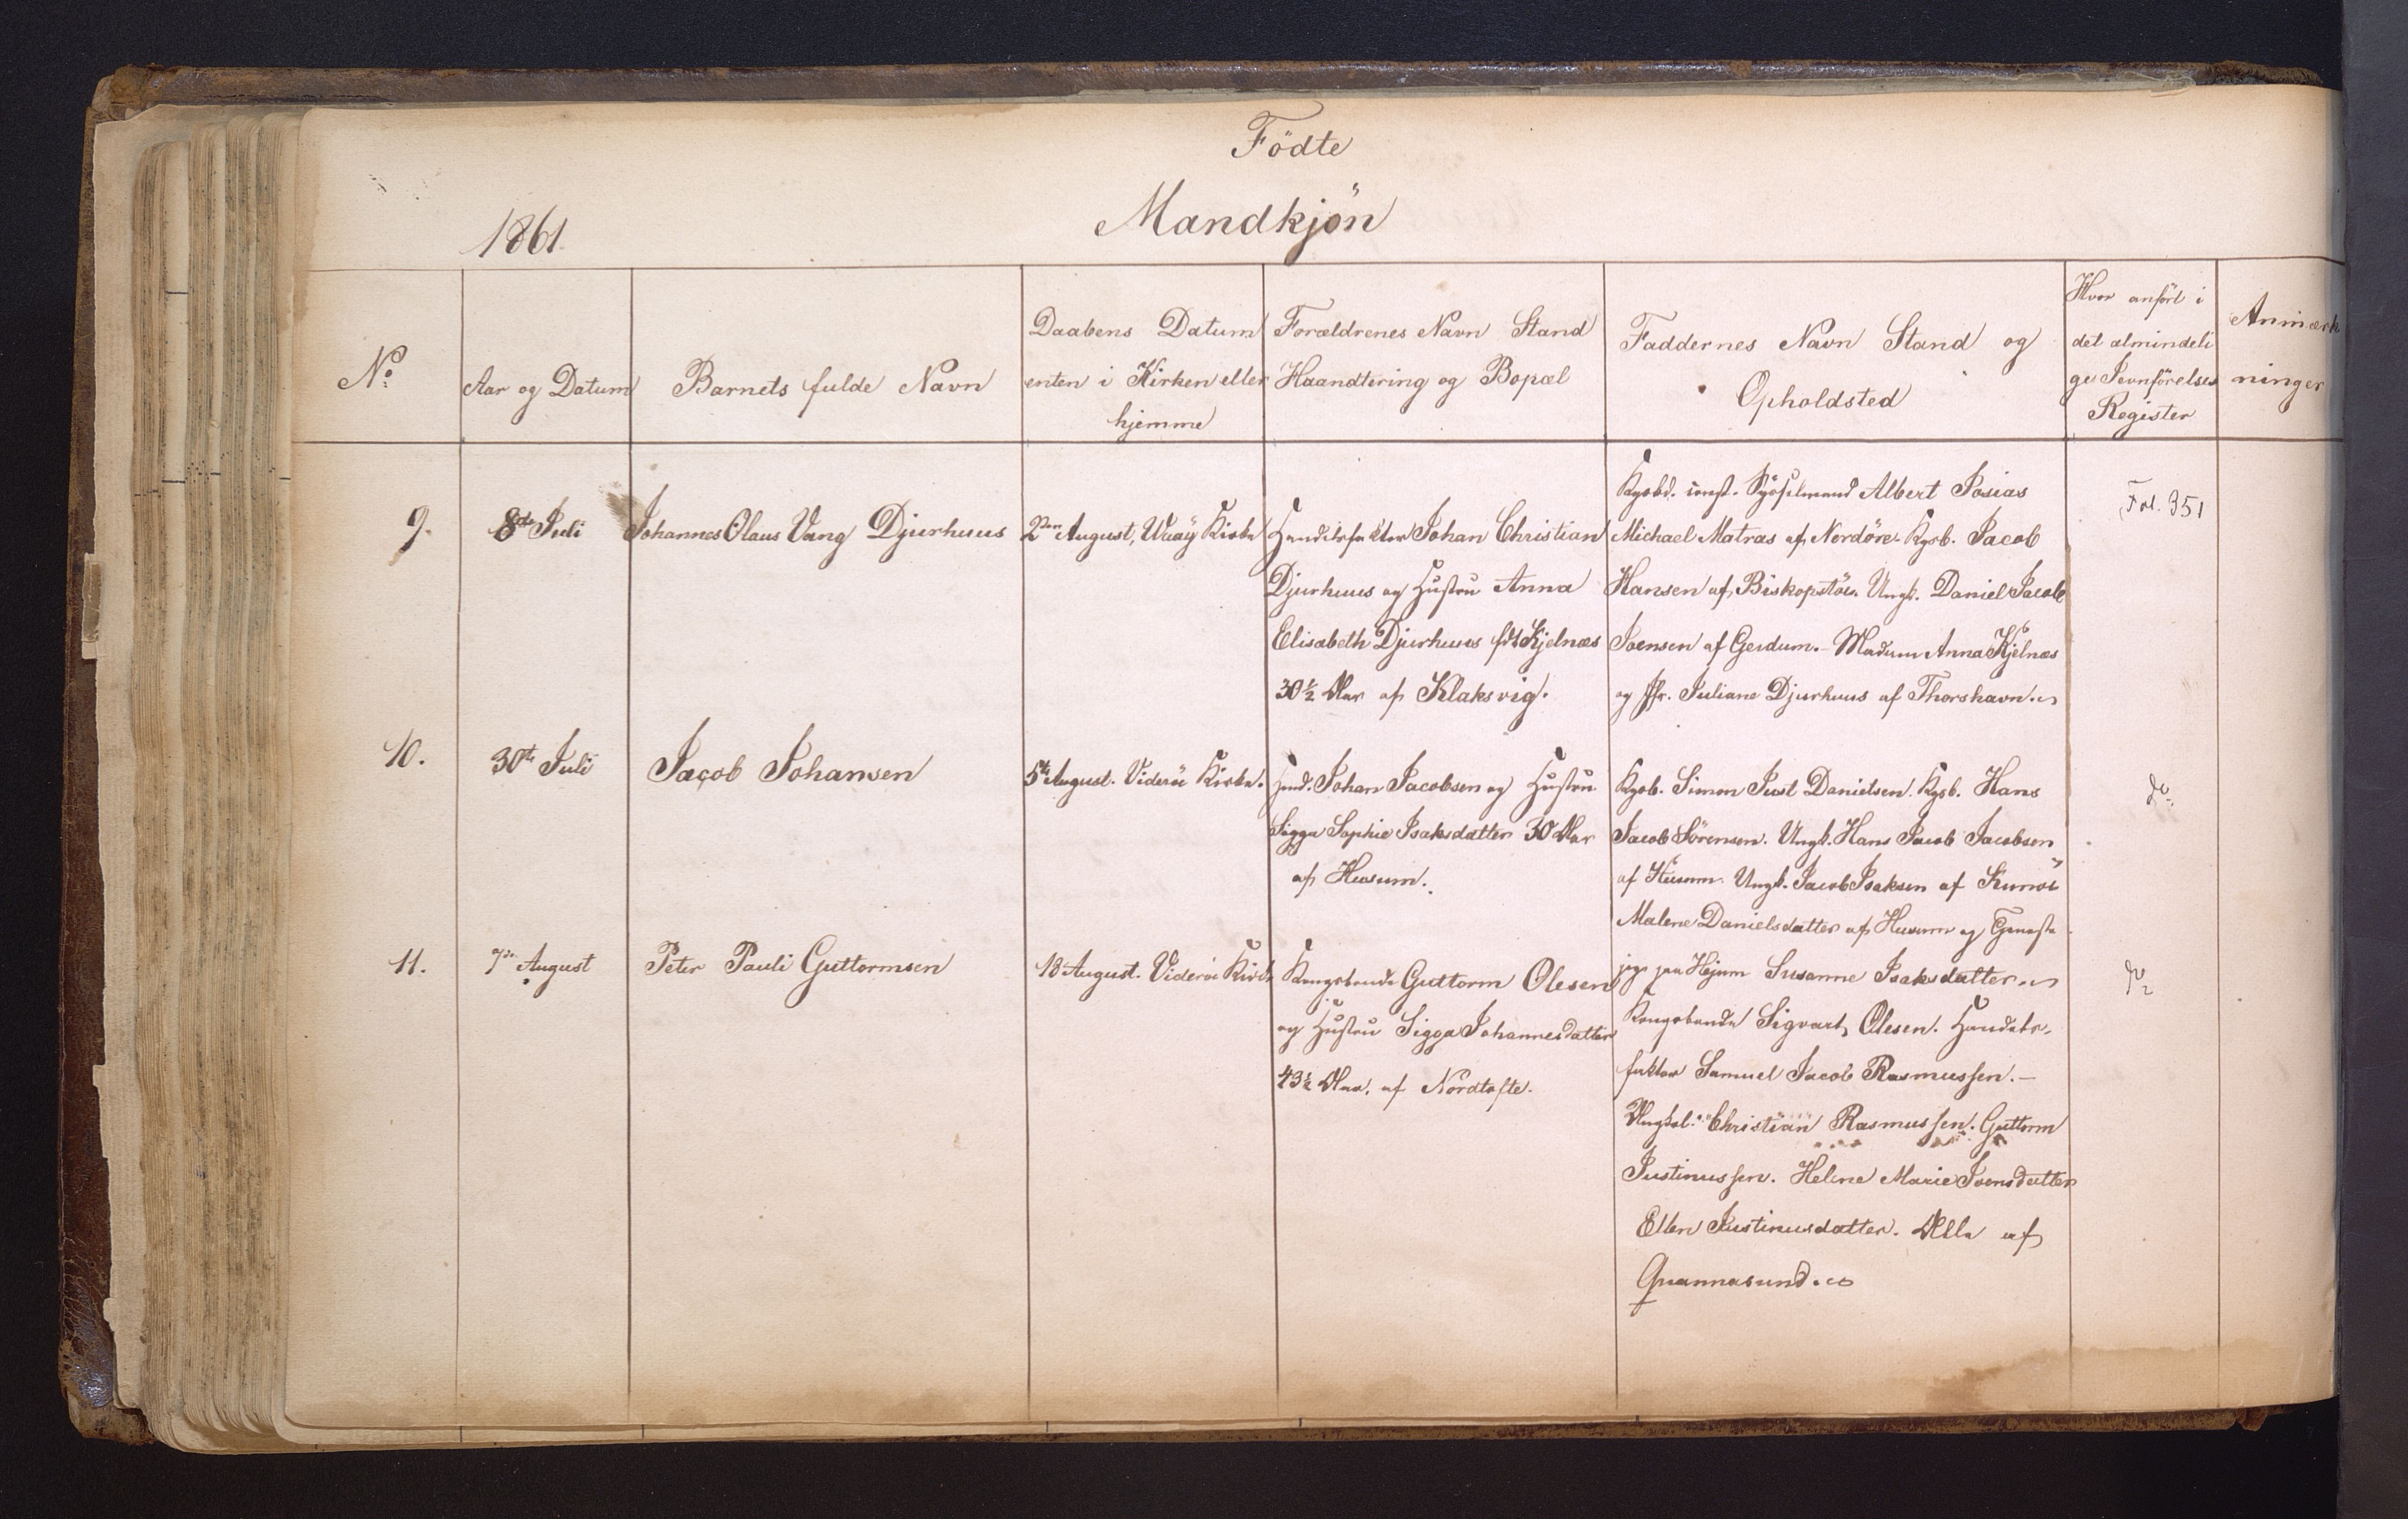 Födte
Mandkjön
1861
No
Aar og Datum
Barnets fulde Navn
Daabens Datum
enten i Kirken eller
hjemme
Forældrenes Navn Stand
Haandtering og Bopæl
Faddernes Navn Stand og
Opholdsted
Hvor anført i
det almindeli
ge Jevnförelses
Register
Anmærk
ninger
9.
8de Juli
Johannes Olaus Vang Djurhuus
2den August, Waaÿ Kirke
Handelsfaktor Johan Christian
Djurhuus og Hustru Anna
Elisabeth Djurhuus fdt Kjelnæs
30½ Aar af Klaksvig.
Kgsbd. const. Sysselmand Albert Josias
Michael Matras af Nordöre. Kgsb. Jacob
Hansen af Biskopstöe. Ungk. Daniel Jacob
Joensen af Gerdum. Madam Anna Kjelnæs
og Jfr. Juliane Djurhuus af Thorshavn.
Fol. 351
10.
30te Juli
Jacob Johansen
5te August. Videröe Kirke.
Johan Jacobsen og Hustru
Sigga Sophie Isaksdatter 30 Aar
af Husum.
Kgsb. Simon Just Danielsen. Kgsb. Hans
Jacob Sörensen. Ungk. Hans Jacob Jacobsen
af Husum. Ungk. Jacob Isaksen af Kunöe
Malene Danielsdatter af Husum og Tjeneste
pige paa Hejum Susanne Isaksdatter.
do
11.
7de August
Peter Pauli Guttormsen
18 August. Videröe Kirke
Kongsbonde Guttorm Olesen
og Hustru Sigga Johannesdatter
43½ Aar. af Nordtofte.
Kongsbonde Sigvart Olesen. Handels-
faktor Samuel Jacob Rasmussen.
Ungkal: Christian Rasmussen. Guttorm
Justinussen. Helene Marie Joensdatter
Ellen Justinusdatter. Alle af
Quannasund.
do